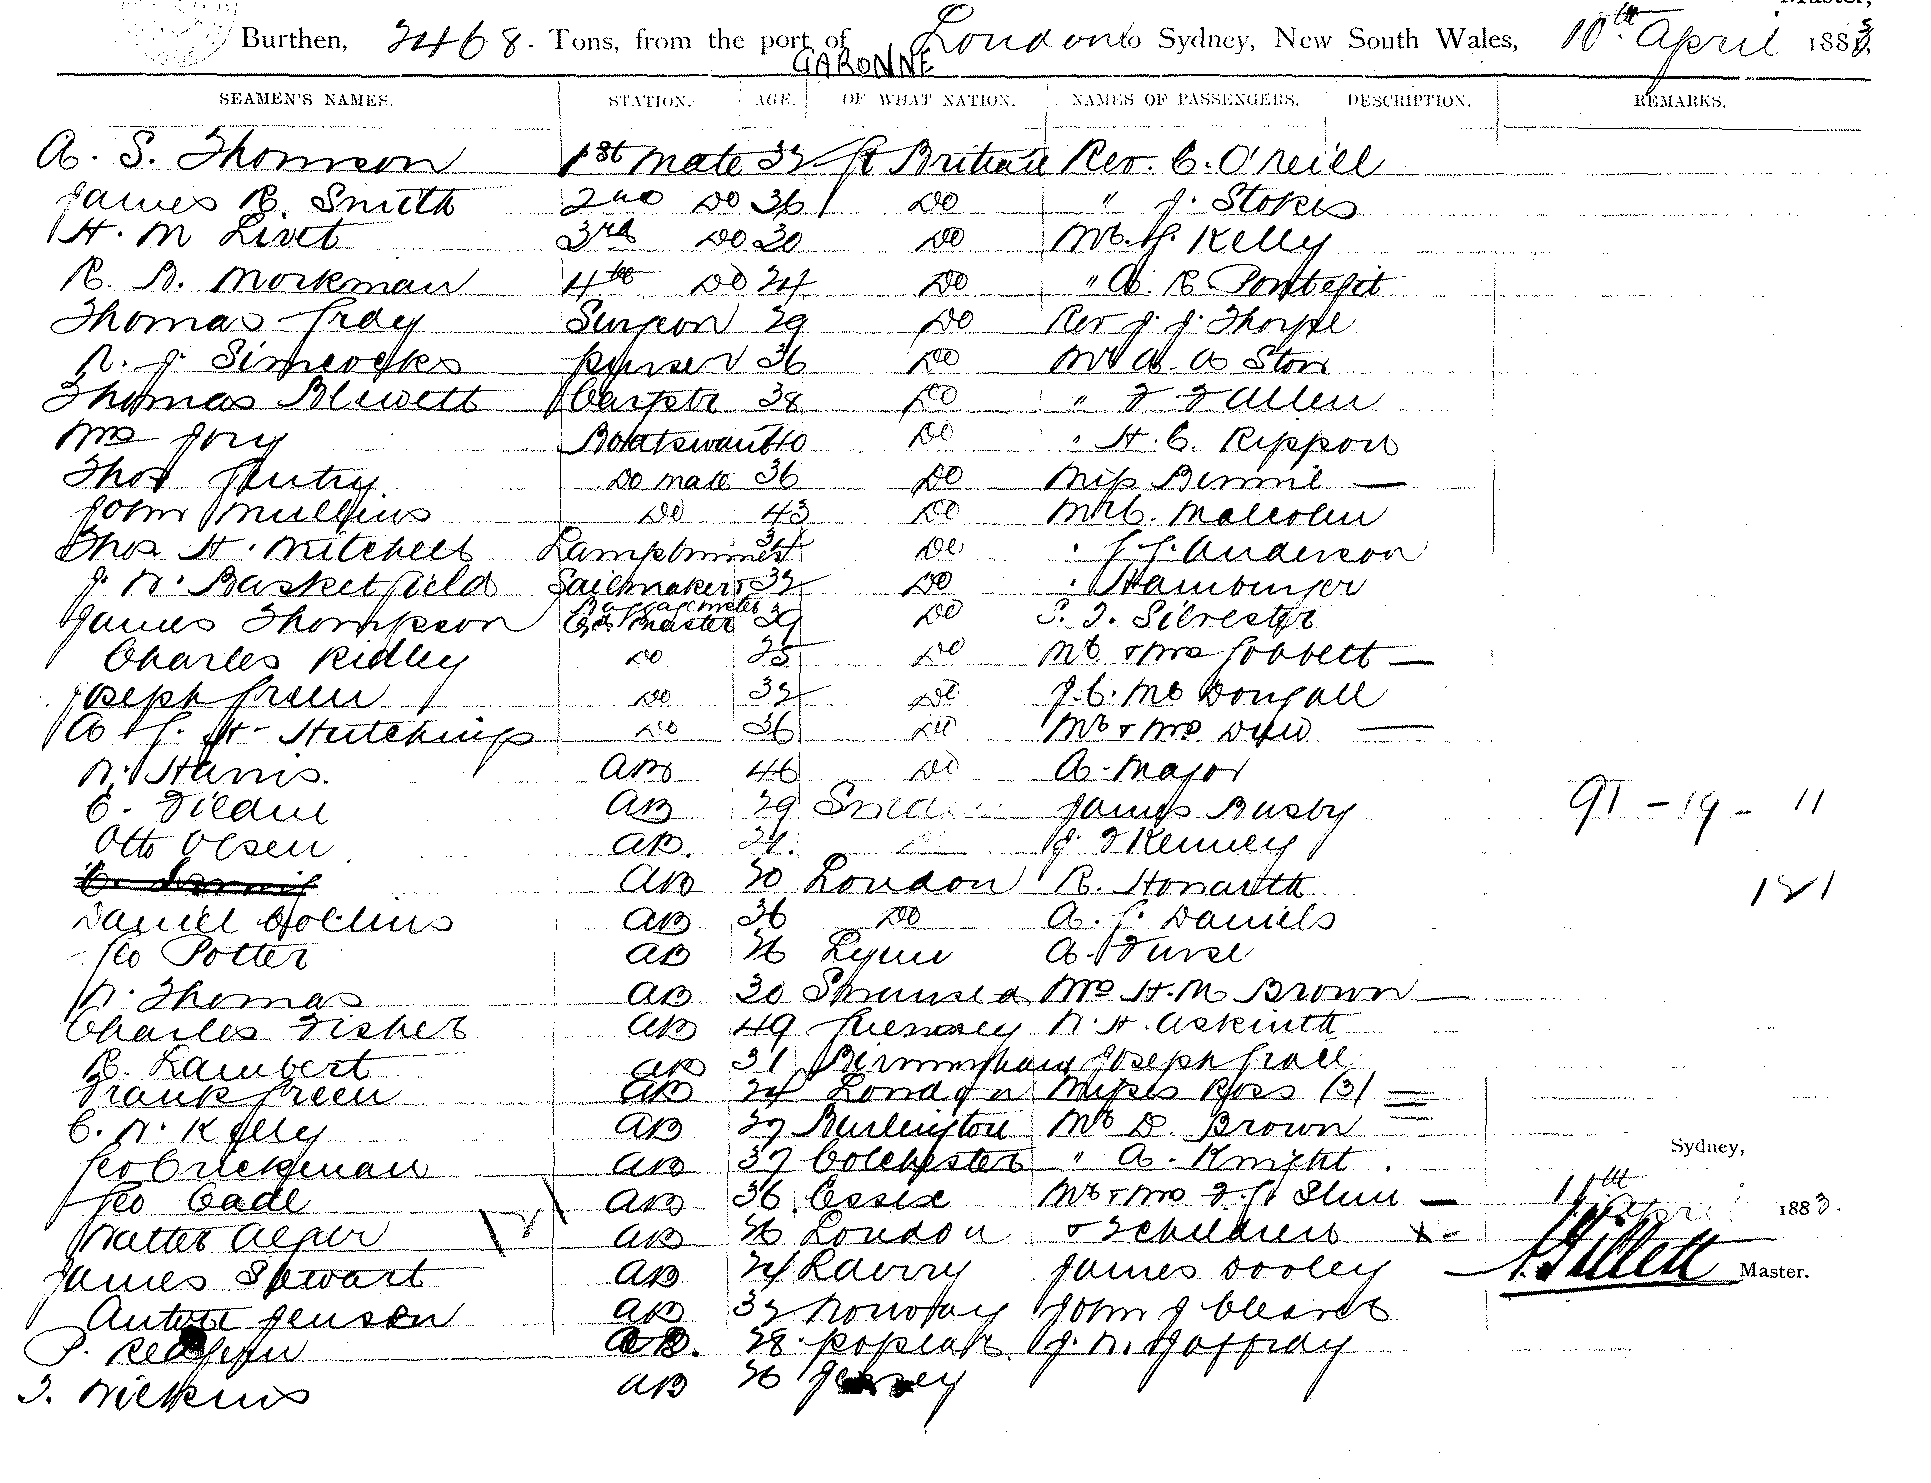 Master,
Burthen, 2468. Tons, from the port of London to Sydney, New South Wales, 10th April 1883.
GARONNE
SEAMEN'S NAMES. STATION. AGE. OF WHAT NATION. NAMES OF PASSENGERS. DESCRIPTION. REMARKS.
A. S. Thomson 1st Mate 32 Gt Britain Rev. C. O'Neill
James R. Smith 2nd Do 36 Do " J. Stokes
H. M Livet 3rd Do 30 Do Mr. G. Kelly
R. B. Workman 4th Do 24 Do " A. R
Thomas Gray Surgeon 29 Do Rev J. J. Thorpe
W. J. Simcocks purser 36 Do Mr A. A Storr
Thomas Blewett Carptr 38 Do " F F Allen
Wm Jory Boatswain 40 Do " H. C. Rippon
Thos Gentry Do mate 36 Do Miss Binnie —
John Mullins Do 43 Do Mr C. Malcolm
Thos H. Mitchell Lamptrimmer 34 Do " G. G. Anderson
J. W. Basketfield Sailmaker 32 Do " Hamburger
James Thompson Qr Master 39 Do S. T. Silvester
Charles Ridley Do 25 Do Mr & Mrs Gobbett —
Joseph Green Do 32 Do J. C. Mc Dougall
A G. H- Hutchings Do 36 Do Mr & Mrs —
W. Harris. AB 46 Do A. Major
C. AB 29 James Busby
Otto Olsen AB. J. F Kenney
AB 30 London R. Howarth
Daniel Collins AB 36 Do A. G. Daniels
Geo Potter AB 26 Lynn A. Furse
W. Thomas AB 30 Swansea Mrs H. M Brown —
Charles Fisher AB 49 Guernsey W. H. Askwith
R. Lambert AB 31 Birmingham Joseph Grace
Frank Green AB 24 London Misses Ross (3) =
C. W. Kelly AB 27 Burlington Mr D. Brown
Geo Crickmar AB 37 Colchester " A. Knight.
Geo Cade AB 36 Essex Mr & Mrs F. G. —
Walter Alger AB 26 London & 2 children
James Stewart AB 24 James Dooley
Anton Jensen AB 32 Norway John J Cleares
P. AB. 28 Poplar J. W. Jaffray
T. Wilkins AB 26 Jersey
91 - 19 - 11
121
Sydney,
11th April 1883.
Gillett Master.